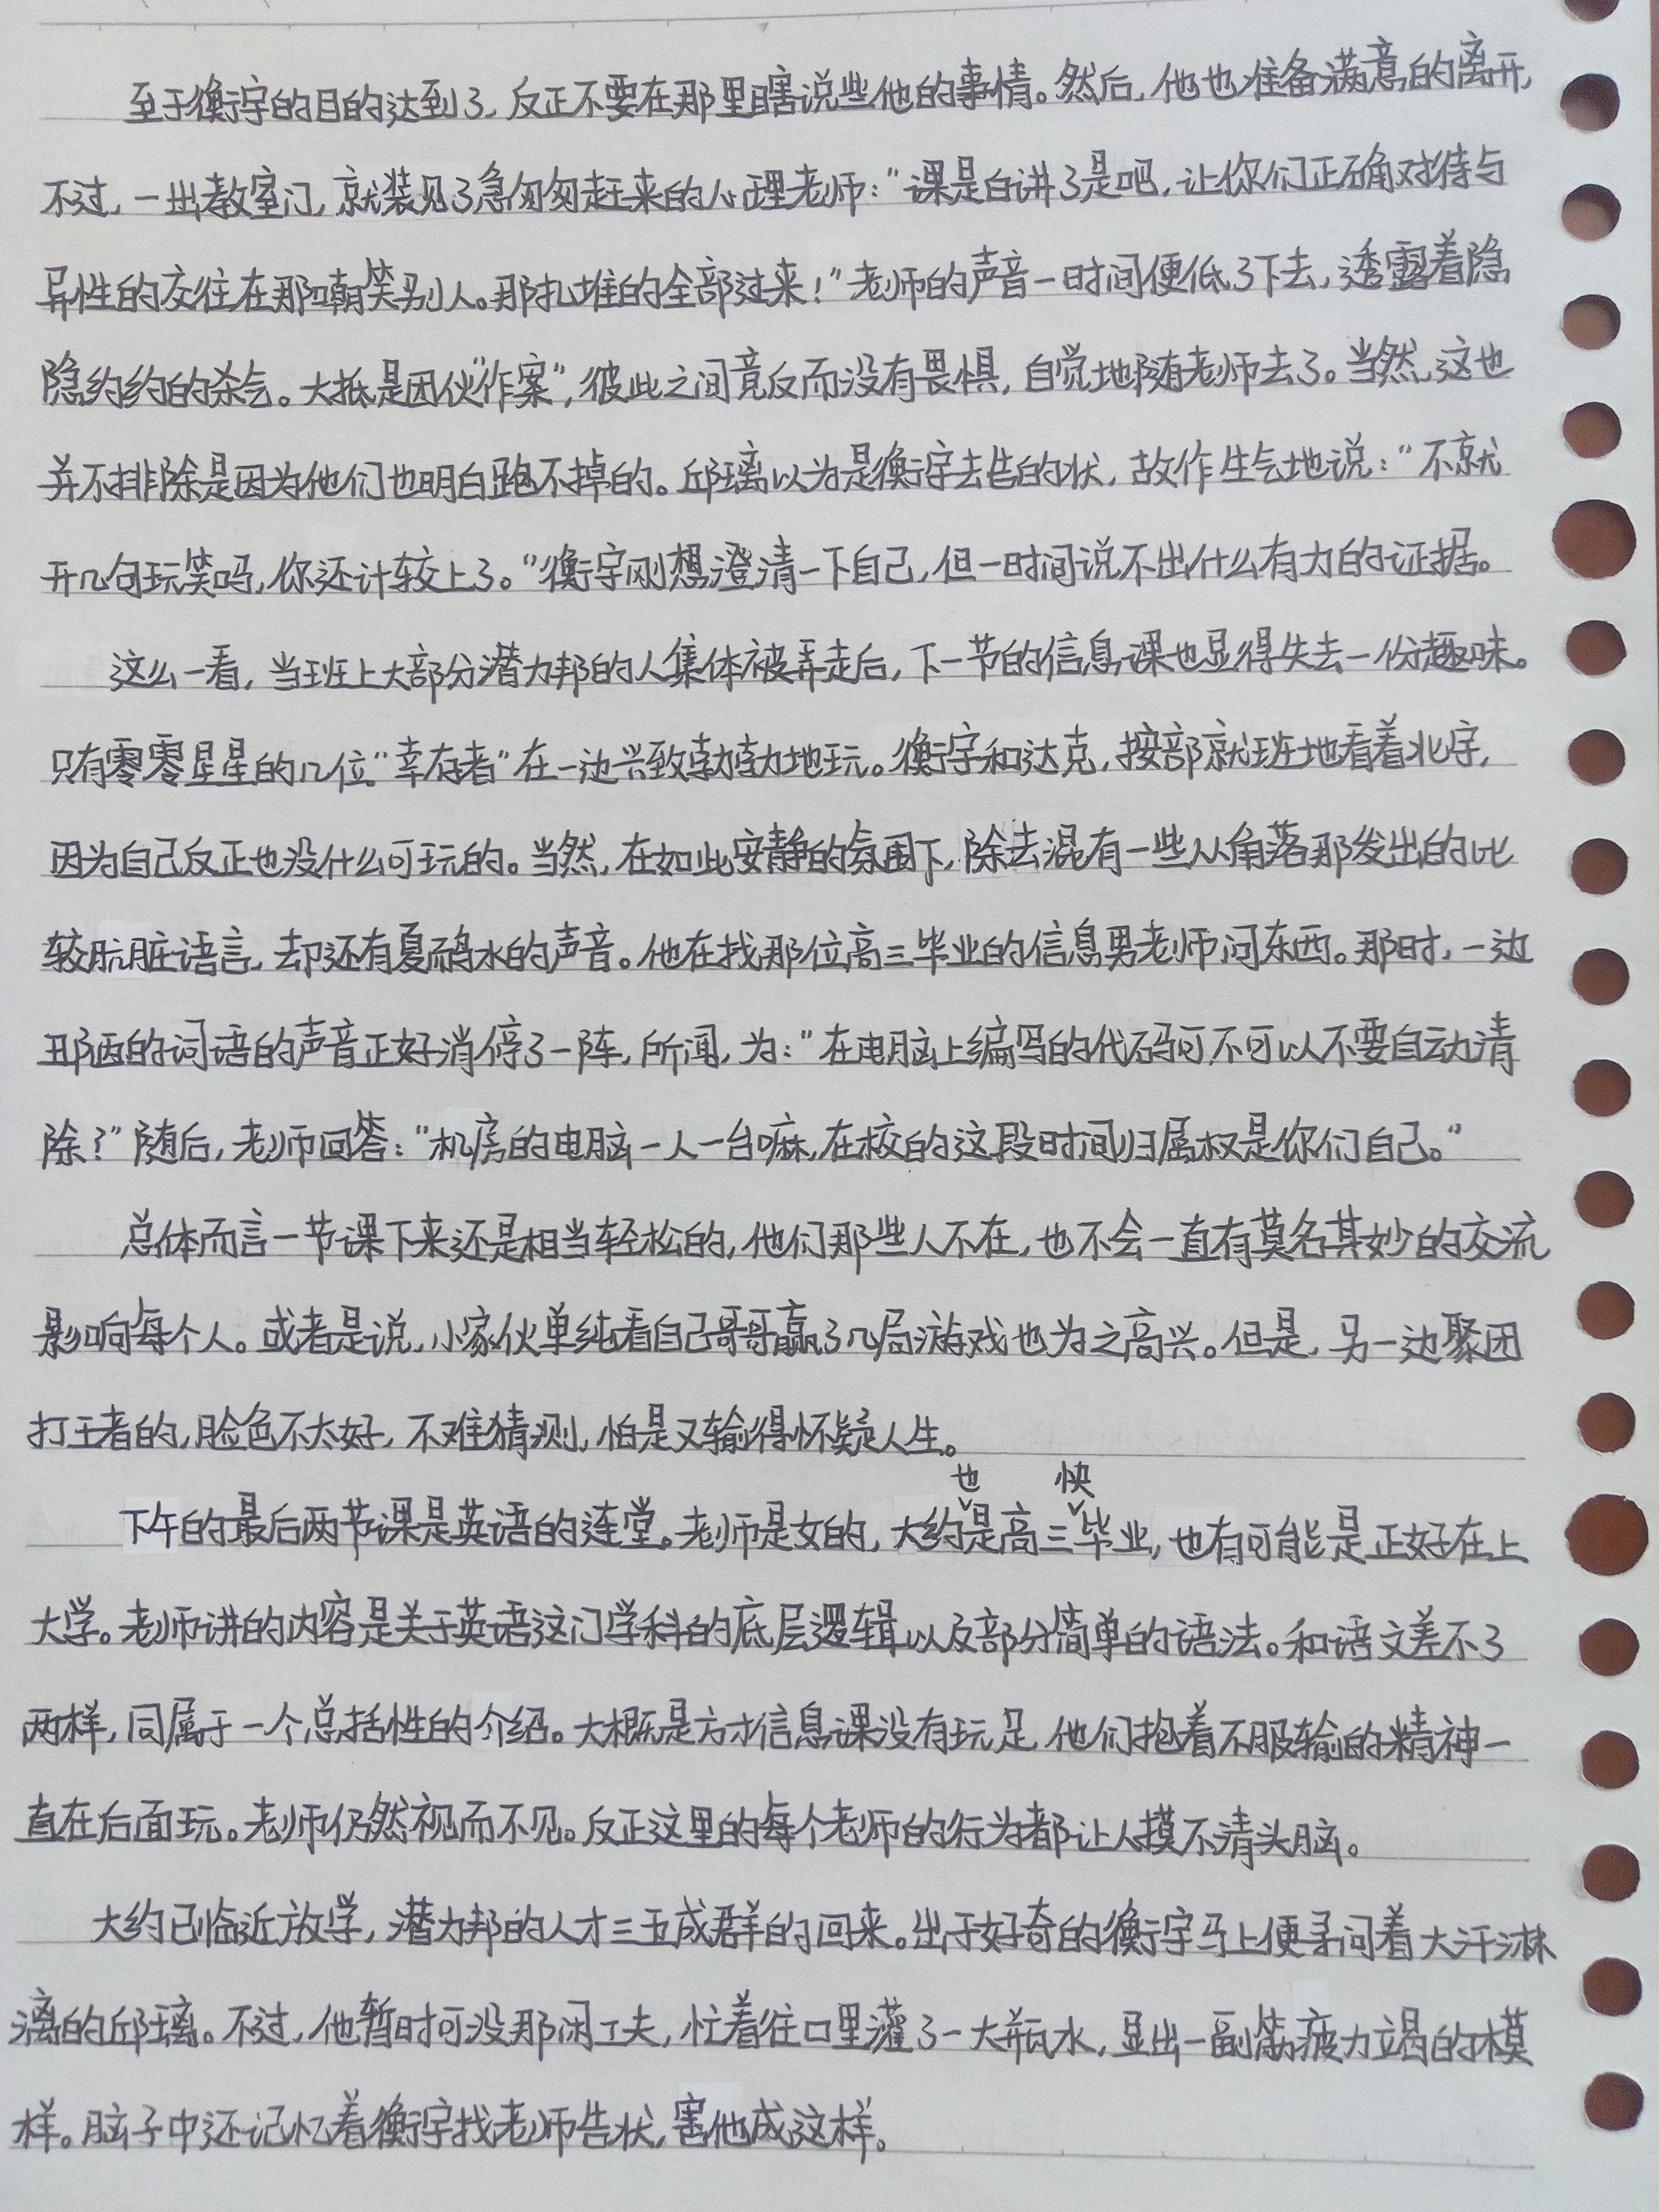 至于衡宇的目的达到了，反正不要在那里瞎说些他的事情。然后，他也准备满意的离开，
不过，一出教室门，就装见了急匆匆赶来的心理老师：“课是白讲了是吧，让你们正确对待与
异性的交往在那嘲笑别人。那扎堆的全部过来！”老师的声音一时间便低了下去，透露着隐
隐约约的杀气。大抵是团伙“作案”，彼此之间竟反而没有畏惧，自觉地随老师去了。当然，这也
并不排除是因为他们也明白跑不掉的。邱璃以为是衡宇去告的状，故作生气地说：“不就
开几句玩笑吗，你还计较上了。”衡宇刚想澄清一下自己，但一时间说不出什么有力的证据。
这么一看，当班上大部分潜力邦的人集体被弄走后，下一节的信息课也显得失去一份趣味。
只有零零星星的几位“幸存者”在一边兴致勃勃地玩。衡宇和达克，按部就班地看着北宇，
因为自己反正也没什么可玩的。当然，在如此安静的氛围下，除去混有一些从角落那发出的比
较肮脏语言，却还有夏硝水的声音。他在找那位高三毕业的信息男老师问东西。那时，一边
丑陋的词语的声音正好消停了一阵，所闻，为：“在电脑上编写的代码可不可以不要自动清
除？”随后，老师回答：“机房的电脑一人一台嘛，在校的这段时间归属权是你们自己。”
总体而言一节课下来还是相当轻松的，他们那些人不在，也不会一直有莫名其妙的交流
影响每个人。或者是说，小家伙单纯看自己哥哥赢了几局游戏也为之高兴。但是，另一边聚团
打王者的，脸色不太好，不难猜测，怕是又输得怀疑人生。
下午的最后两节课是英语的连堂。老师是女的，大约也是高三快毕业，也有可能是正好在上
大学。老师讲的内容是关于英语这门学科的底层逻辑以及部分简单的语法。和语文差不了
两样，同属于一个总括性的介绍。大概是方才信息课没有玩足，他们抱着不服输的精神一
直在后面玩。老师仍然视而不见。反正这里的每个老师的行为都让人摸不清头脑。
大约已临近放学，潜力邦的人才三五成群的回来。出于好奇的衡宇马上便寻问着大汗淋
漓的邱璃。不过，他暂时可没那闲工夫，忙着往口里灌了一大瓶水，显出一副筋疲力竭的模
样。脑子中还记忆着衡宇找老师告状，害他成这样。